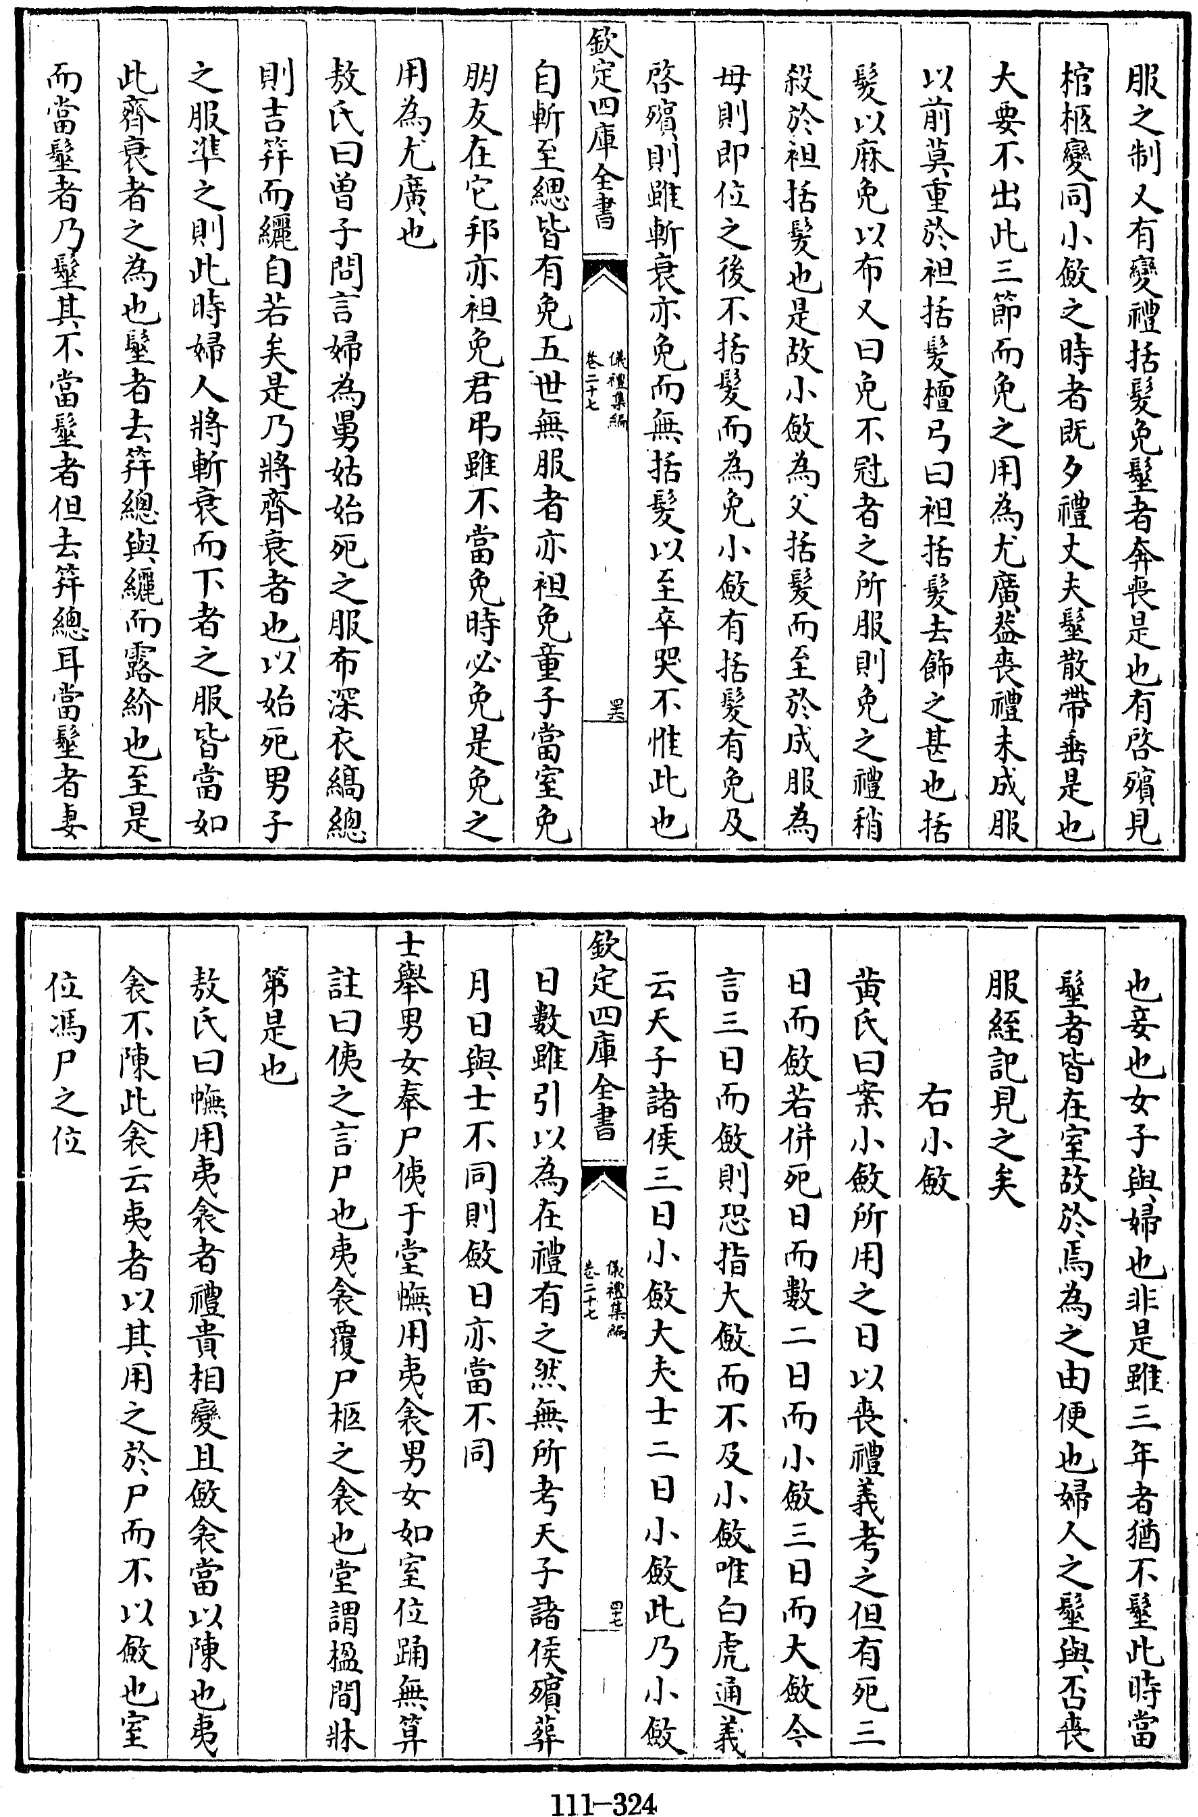 服之制又有變禮括髮免髽者奔喪是也有啓殯見
棺柩變同小斂之時者既夕禮丈夫髽散帶垂是也
大要不出此三節而免之用為尤廣葢喪禮未成服
以前莫重於袒括髮檀弓曰袒括髮去飾之甚也括
髮以麻免以布又曰免不冠者之所服則免之禮稍
殺於袒括髮也是故小斂為父括髮而至於成服為
母則即位之後不括髮而為免小斂有括髮有免及
啓殯則雖斬衰亦免而無括髮以至卒哭不惟此也
欽定四庫全書
儀禮集編
卷二十七
罢
自斬至緦皆有免五世無服者亦袒免童子當室免
朋友在它邦亦袒免君弔雖不當免時必免是免之
用為尤廣也
敖氏曰曾子問言婦為舅姑始死之服布深衣縞總
則吉筓而纚自若矣是乃將齊衰者也以始死男子
之服準之則此時婦人將斬衰而下者之服皆當如
此齊衰者之為也髽者去筓總與纚而露紒也至是
而當髽者乃髽其不當髽者但去筓總耳當髽者妻
也妾也女子與婦也非是雖三年者猶不髽此時當
髽者皆在室故於焉為之由便也婦人之髽與否喪
服絰記見之矣
右小斂
黄氏曰案小斂所用之日以喪禮義考之但有死三
日而斂若併死日而數二日而小斂三日而大斂今
言三日而斂則恐指大斂而不及小斂唯白虎通義
云天子諸侯三日小斂大夫士二日小斂此乃小斂
欽定四庫全書
儀禮集編
卷二十七
四七
日數雖引以為在禮有之然無所考天子諸侯殯葬
月日與士不同則斂日亦當不同
士舉男女奉尸侇于堂幠用夷衾男女如室位踊無算
註曰侇之言尸也夷衾覆尸柩之衾也堂謂楹間牀
第是也
敖氏曰幠用夷衾者禮貴相變且斂衾當以陳也夷
衾不陳此衾云夷者以其用之於尸而不以斂也室
位馮尸之位
111-324